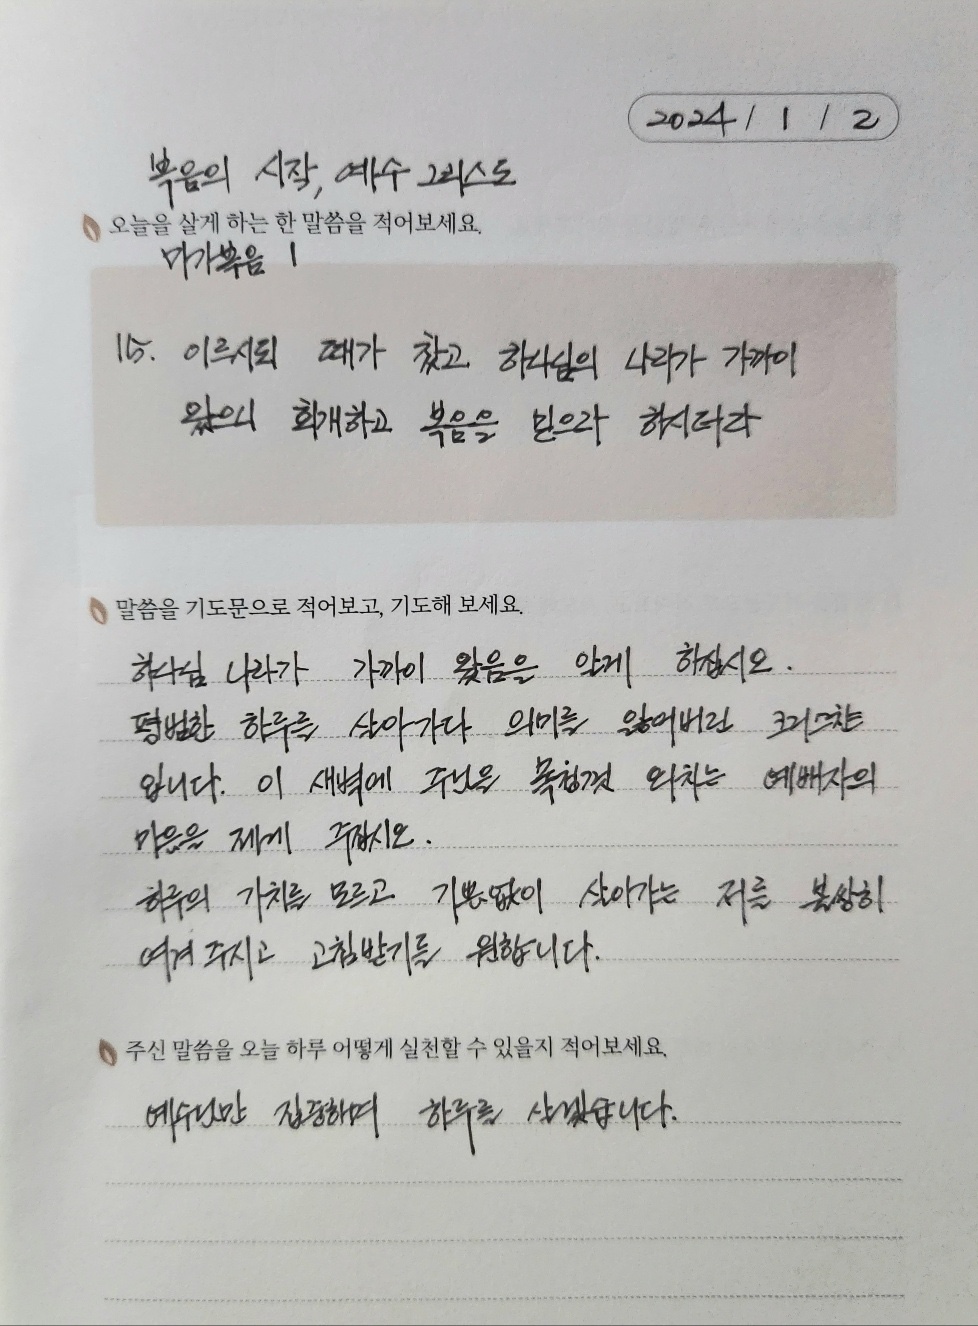 2024 / 1 / 2
복음의 시작, 예수 그리스도
오늘을 살게 하는 한 말씀을 적어보세요.
마가복음 1
15. 이르시되 때가 찼고 하나님의 나라가 가까이
왔으니 회개하고 복음을 믿으라 하시더라
말씀을 기도문으로 적어보고, 기도해 보세요.
하나님 나라가 가까이 왔음을 알게 하십시오.
평범한 하루를 살아가다 의미를 잃어버린 크리스챤
입니다. 이 새벽에 주님을 목청껏 외치는 예배자의
마음을 제게 주십시오.
하루의 가치를 모르고 기쁨없이 살아가는 저를 불쌍히
여겨 주시고 고침받기를 원합니다.
주신 말씀을 오늘 하루 어떻게 실천할 수 있을지 적어보세요.
예수님만 집중하며 하루를 살겠습니다.